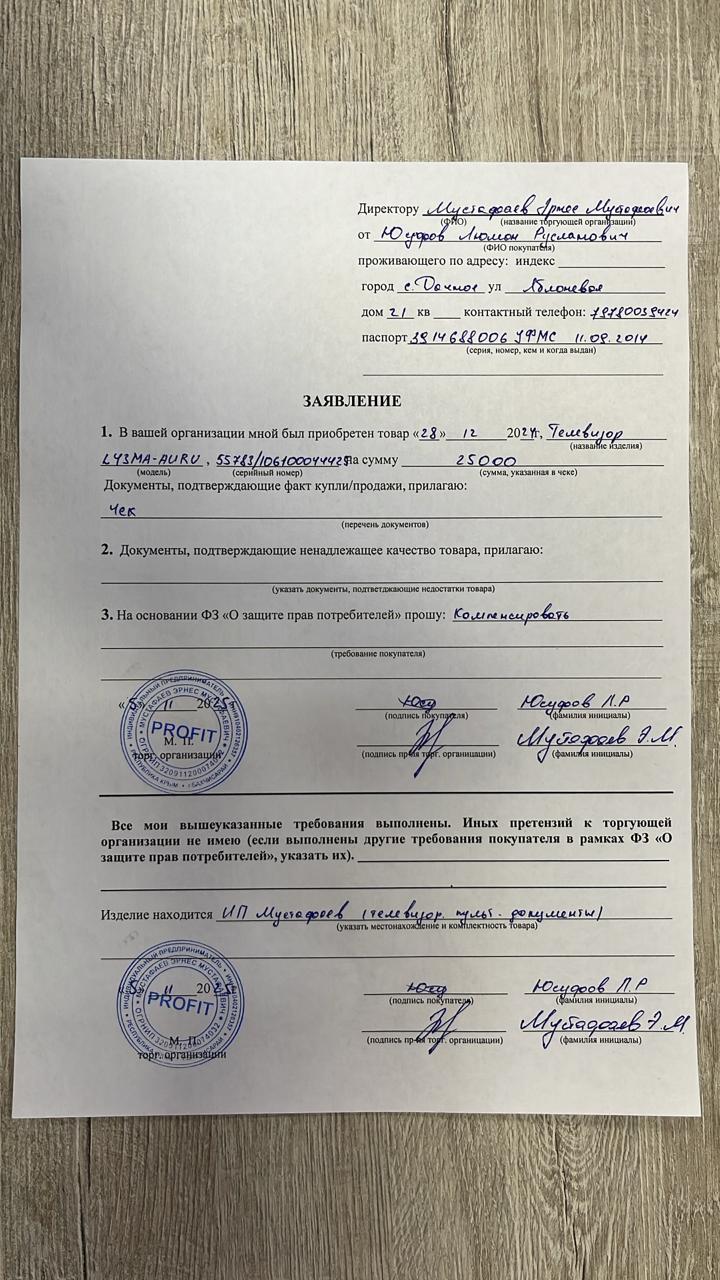 Директору Мустафаев Эрнес Мустафаевич
(ФИО) (название торгующей организации)
от Юсуфов Люман Русланович
(ФИО покупателя)
проживающего по адресу: индекс
город с. Дачное ул Яблоневая
дом 21 кв контактный телефон: 79780039424
паспорт 3914688006 УФМС 11.09.2014
(серия, номер, кем и когда выдан)
ЗАЯВЛЕНИЕ
1. В вашей организации мной был приобретен товар «28» 12 2024, Телевизор
(название изделия)
L43MA-AURU, 55783/106100044425 на сумму 25000
(модель) (серийный номер) (сумма, указанная в чеке)
Документы, подтверждающие факт купли/продажи, прилагаю:
Чек
(перечень документов)
2. Документы, подтверждающие ненадлежащее качество товара, прилагаю:
(указать документы, подтветджающие недостатки товара)
3. На основании ФЗ «О защите прав потребителей» прошу: Компенсировать
(требование покупателя)
«5» 11 2025г Юсуфов Л.Р
(подпись покупателя) (фамилия инициалы)
PROFIT
М. П. Мустафаев Э.М.
торг. организации (подпись пр-ля торг. органицации) (фамилия инициалы)
Все мои вышеуказанные требования выполнены. Иных претензий к торгующей
организации не имею (если выполнены другие требования покупателя в рамках ФЗ «О
защите прав потребителей», указать их).
Изделие находится ИП Мустафаев (телевизор. пульт. документы)
(указать местонахождение и комплектность товара)
«5» 11 2025г Юсуфов Л.Р
(подпись покупателя) (фамилия инициалы)
PROFIT
Мустафаев Э.М.
М. П. (подпись пр-ля торг. органицации) (фамилия инициалы)
торг. организации